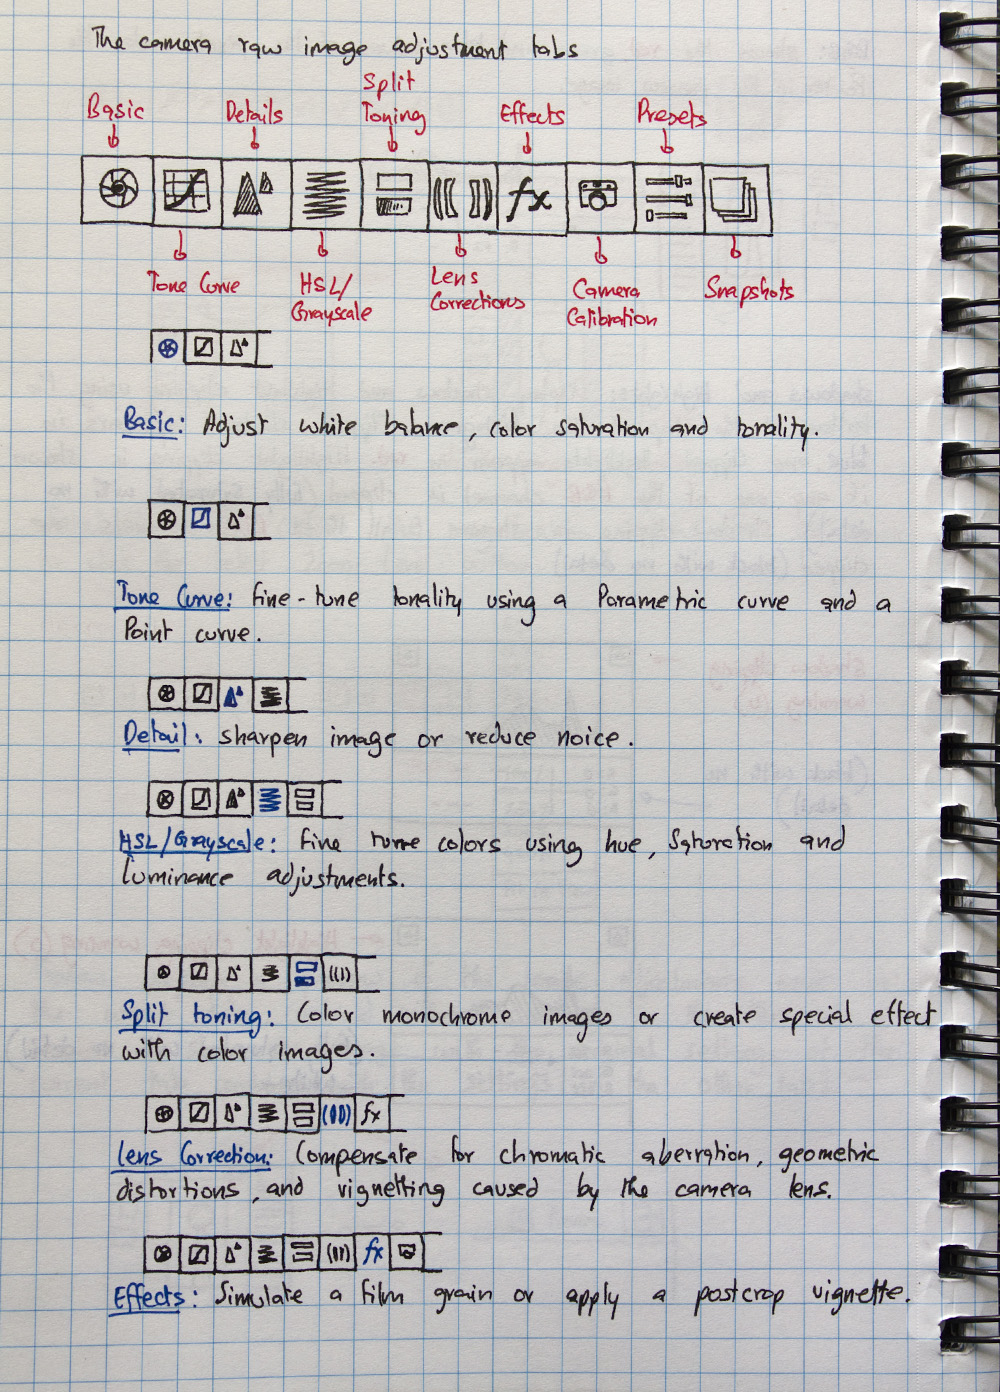 The camera raw image adjustment tabs
Basic Details Split Toning Effects Presets
fx
Tone Curve HSL/ Grayscale Lens Corrections Camera Calibration Snapshots
Basic: Adjust white balance, color saturation and tonality.
Tone Curve: fine-tune tonality using a Parametric curve and a
Point curve.
Detail: sharpen image or reduce noice.
HSL/Grayscale: fine tune colors using hue, Saturation and
luminance adjustments.
Split toning: Color monochrome images or create special effect
with color images.
fx
Lens Correction: Compensate for chromatic aberration, geometric
distortions, and vignetting caused by the camera lens.
fx
Effects: Simulate a film grain or apply a postcrop vignette.